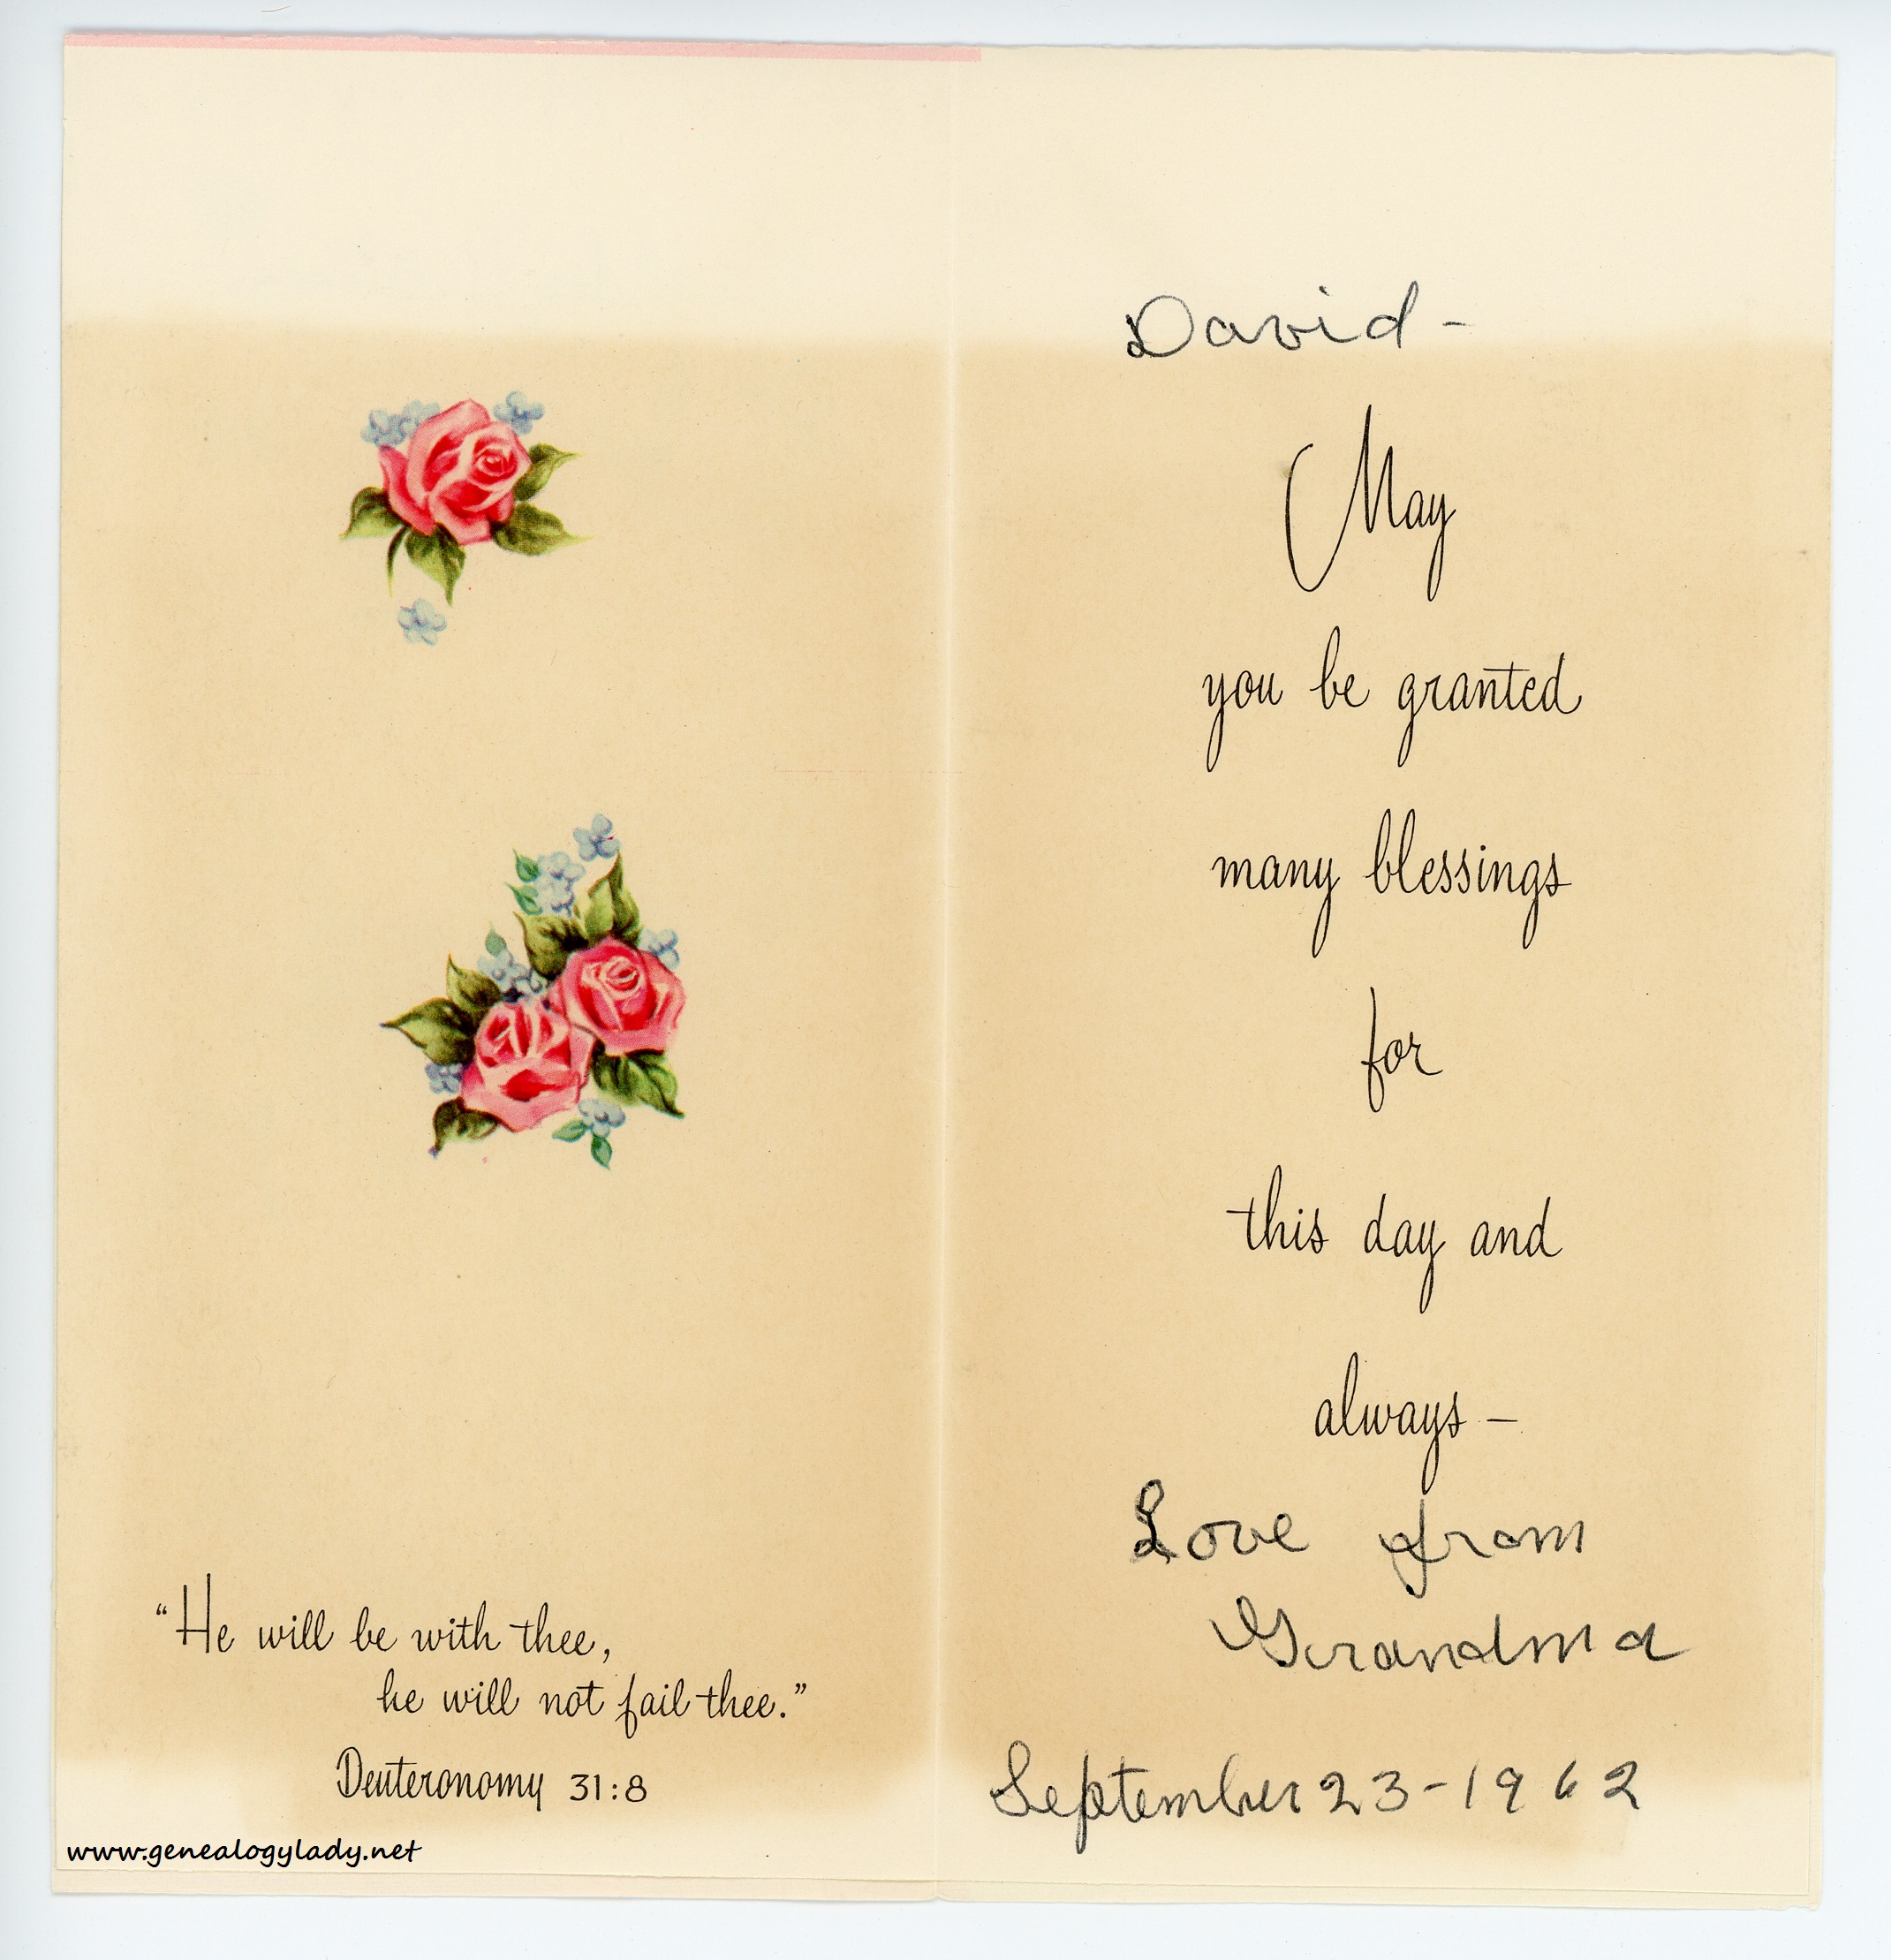 "He will be with thee,
he will not fail thee."
Deuteronomy 31:8
www.genealogylady.net
David -
May
you be granted
many blessings
for
this day and
always —
Love from
Grandma
September 23-1962